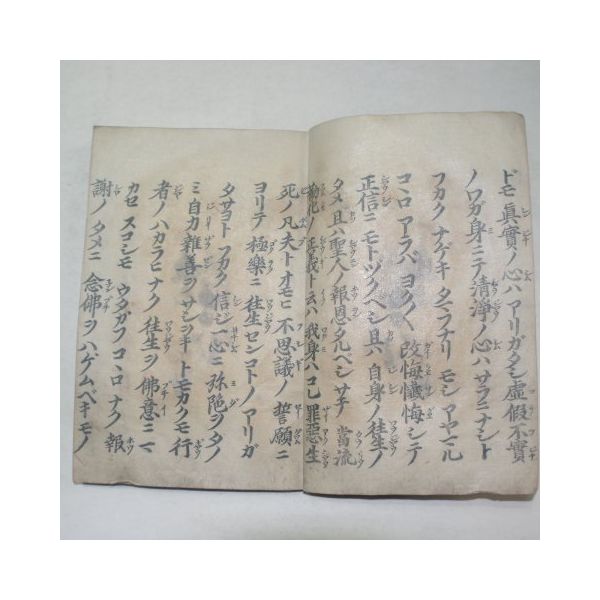 ドモ眞實ノ心ハアリガタシ虛假不實
ノワガ身ニテ清淨ノ心ハサラニナシト
フカクナゲキタマフナリモシアヤマル
コヽロアラバヨク〳〵改悔懺悔シテ
正信ニモトヅクベシ且ハ自身ノ往生ノ
タメ且ハ聖人ノ報恩タルベシサテ當流
勸化ノ正義ト云ハ我身ハコレ罪惡生
死ノ凡夫トオモヒ不思議ノ誓願ニ
ヨリテ極樂ニ往生センコトノアリガ
タサヨトフカク信ジ一心ニ弥陀ヲタノ
ミ自力雜善ヲサシヲキトモカクモ行
者ノハカラヒナク往生ヲ佛意ニマ
カセスコシモウタガフコヽロナク報
謝ノタメニ念佛ヲハゲムベキモノ